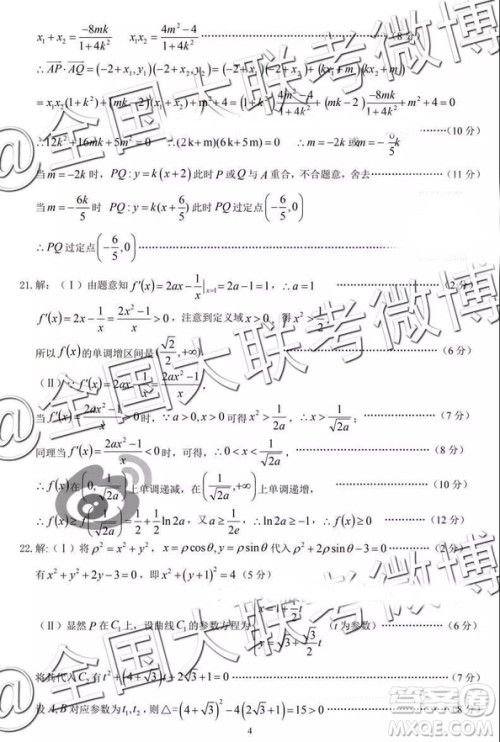 x₁+x₂=(-8mk)/(1+4k²)  x₁x₂=(4m²-4)/(1+4k²) (8分)
∴AP·AQ=(-2+x₁,y₁)(-2+x₂,y₂)=(-2+x₁)(-2+x₂)+(kx₁+m)(kx₂+m)
=x₁x₂(1+k²)+(mk-2)(x₁+x₂)+m²+4=(1+k²)(4m²-4)/(1+4k²)+(mk-2)(-8mk)/(1+4k²)+m²+4=0
∴12k²+16mk+5m²=0 ∴(2k+m)(6k+5m)=0 ∴m=-2k或m=-6k/5 (10分)
当m=-2k时, PQ:y=k(x+2)此时P或Q与A重合, 不合题意, 舍去 (11分)
当m=-6k/5时 PQ:y=k(x-6/5)此时PQ过定点(-6/5,0)
∴PQ过定点(-6/5,0)
21.解:(Ⅰ)由题意知f′(x)=2ax-1/x|x=1=2a-1=1, ∴a=1 (2分)
f′(x)=2x-1/x=(2x²-1)/x>0, 注意到定义域x>0, 得
所以f(x)的单调增区间是(√2/2,+∞) (6分)
(Ⅱ)∵f′(x)=2ax-1/x=(2ax²-1)/x
当f′(x)=(2ax²-1)/x>0时, ∵a>0,x>0可得x²>1/2a, ∴x>1/√2a (7分)
同理当f′(x)=(2ax²-1)/x<0时, 可得, ∴0<x<1/√2a (8分)
∴f(x)在(0,1/√2a)上单调递减, 在(1/√2a,+∞)上单调递增,
∴f(x)≥f(1/√2a)=1/2+1/2ln2a, 又a≥1/2, ∴ln2a≥0, ∴f(x) (12分)
22.解:(Ⅰ)将ρ²=x²+y², x=ρcosθ,y=ρsinθ代入ρ²+2ρsinθ-3=0 (2分)
有x²+y²+2y-3=0, 即x²+(y+1)²=4(5分)
(Ⅱ)显然P在C₁上, 设曲线C₁的参数方程为 (t为参数) (6分)
将其代入C₂有t²+(4+√3)t+2√3+1=0 (7分)
设A,B对应参数为t₁,t₂, 则△=(4+√3)²-4(2√3+1)=15>0 (8分)
4
@全国大联考微博